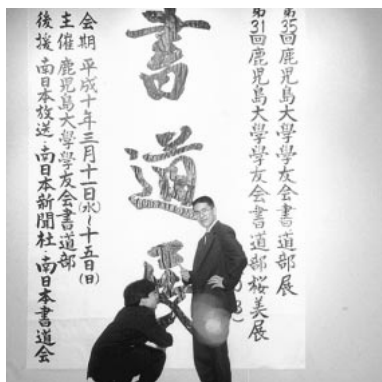 第35回鹿児島大學學友会書道部展
第31回鹿児島大學學友会書道部桜美展
書道展
会期 平成十年三月十一日(水)~十五日(日)
主催 鹿児島大學學友会書道部
後援 南日本放送・南日本新聞社・南日本書道会